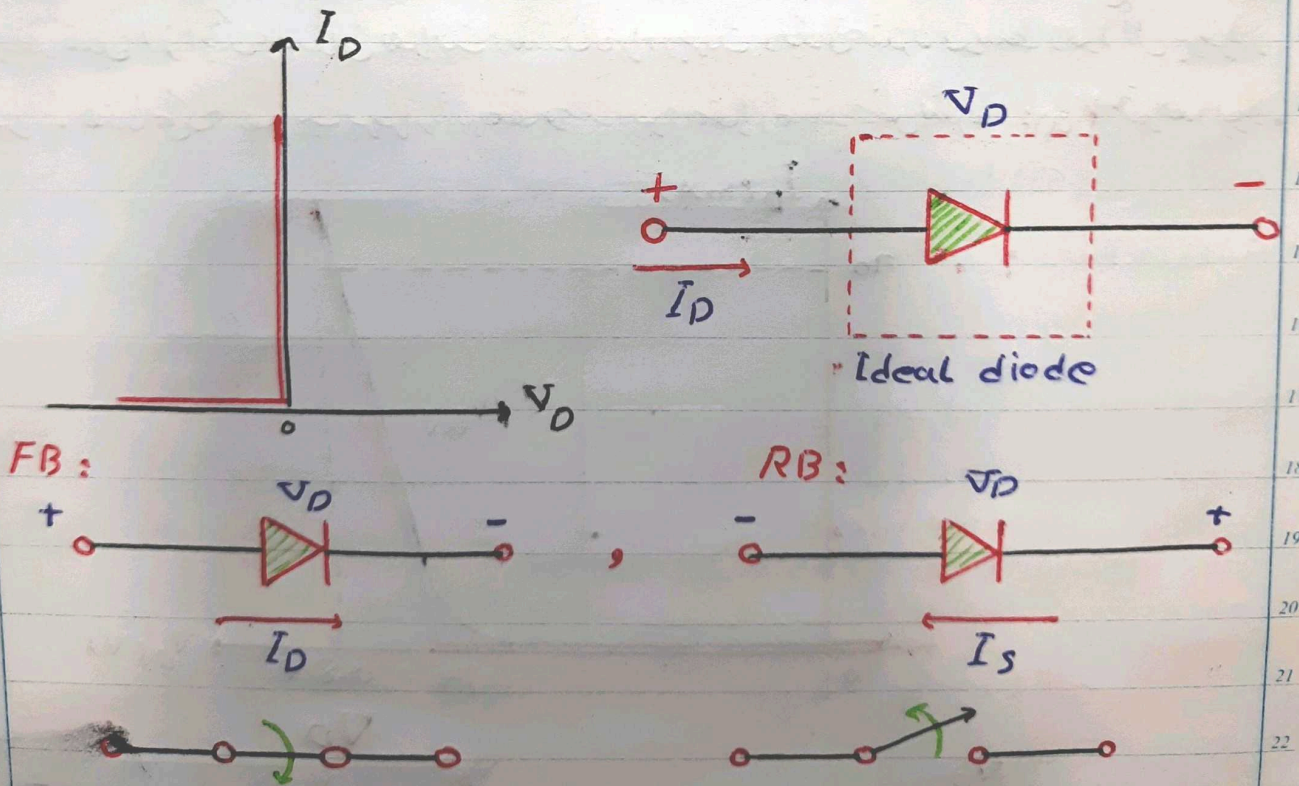 I_D
V_D
+ -
I_D
"Ideal diode
V_D
0
FB: RB:
V_D V_D
+ - , - +
I_D I_S
18
19
20
21
22